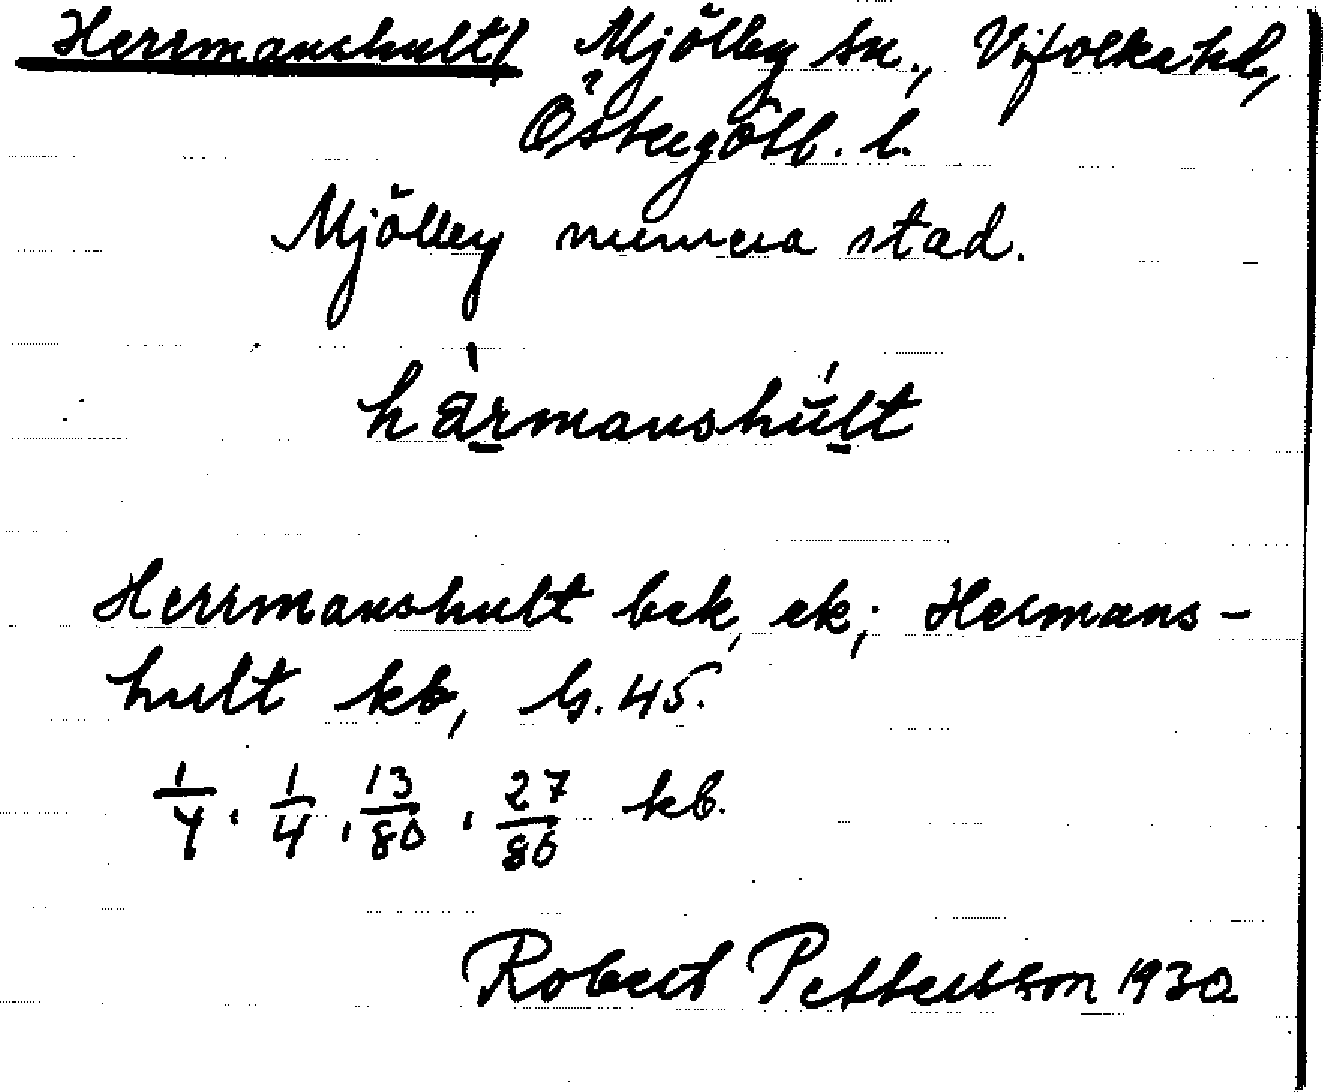 Herrmanshult, Mjölby sn., Vifolka hd,
Östergötl. l.
Mjölby numera stad.
hàrmanshúlt
Herrmanshult bek, ek; Hermans-
hult kb, G. 45.
1/4, 1/4, 13/80, 27/80 kb.
Robert Pettersson 1930